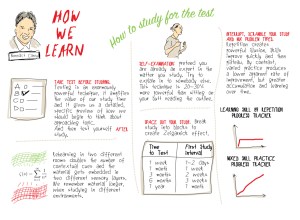 HOW
WE
LEARN
Benedict Carey
How to study for the test
TAKE TEST BEFORE STUDYING.
Testing is an enormously
powerful technique, it amplifies
the value of our study time
and it gives us a detailed,
specific preview of how we
should begin to think about
approaching topic.
And then test yourself AFTER
study.
Rehearsing in two different
rooms doubles the number of
contextual cues and the
material gets embedded in
two different sensory layers.
We remember material longer,
when studying in different
environments.
SELF-EXAMINATION Pretend you
are already an expert in the
matter you study. Try to
explain it to somebody else.
This technique is 20-30%
more powerful than sitting on
your butt reading the outline.
SPACE OUT YOUR STUDY. Break
study into blocks to
create Zeigarnik effect.
Time to Test
First Study Interval
1 week 1-2 days
1 month 1 week
3 months 2 weeks
6 months 3 weeks
1 year 1 month
INTERRUPT, SCRAMBLE YOUR STUDY
AND MIX PROBLEM TYPES.
Repetition creates
powerful illusion. Skills
improve quickly and then
plateau. By contrast,
varied practice produces
a slower apparent rate of
improvement, but greater
accumulation and learning
over time.
LEARNING SKILL BY REPETITION
PROGRESS TEACHER
MIXED SKILL PRACTICE
PROGRESS TEACHER